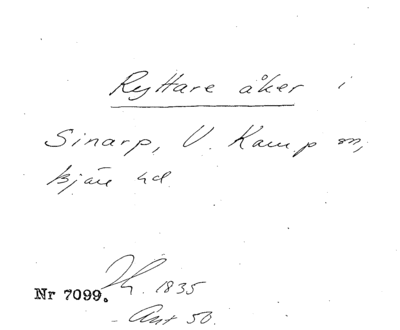 Ryttare åker i
Sinarp, V. Karup sn,
Bjäre hd
Nr 7099.
1835
Ant 50.